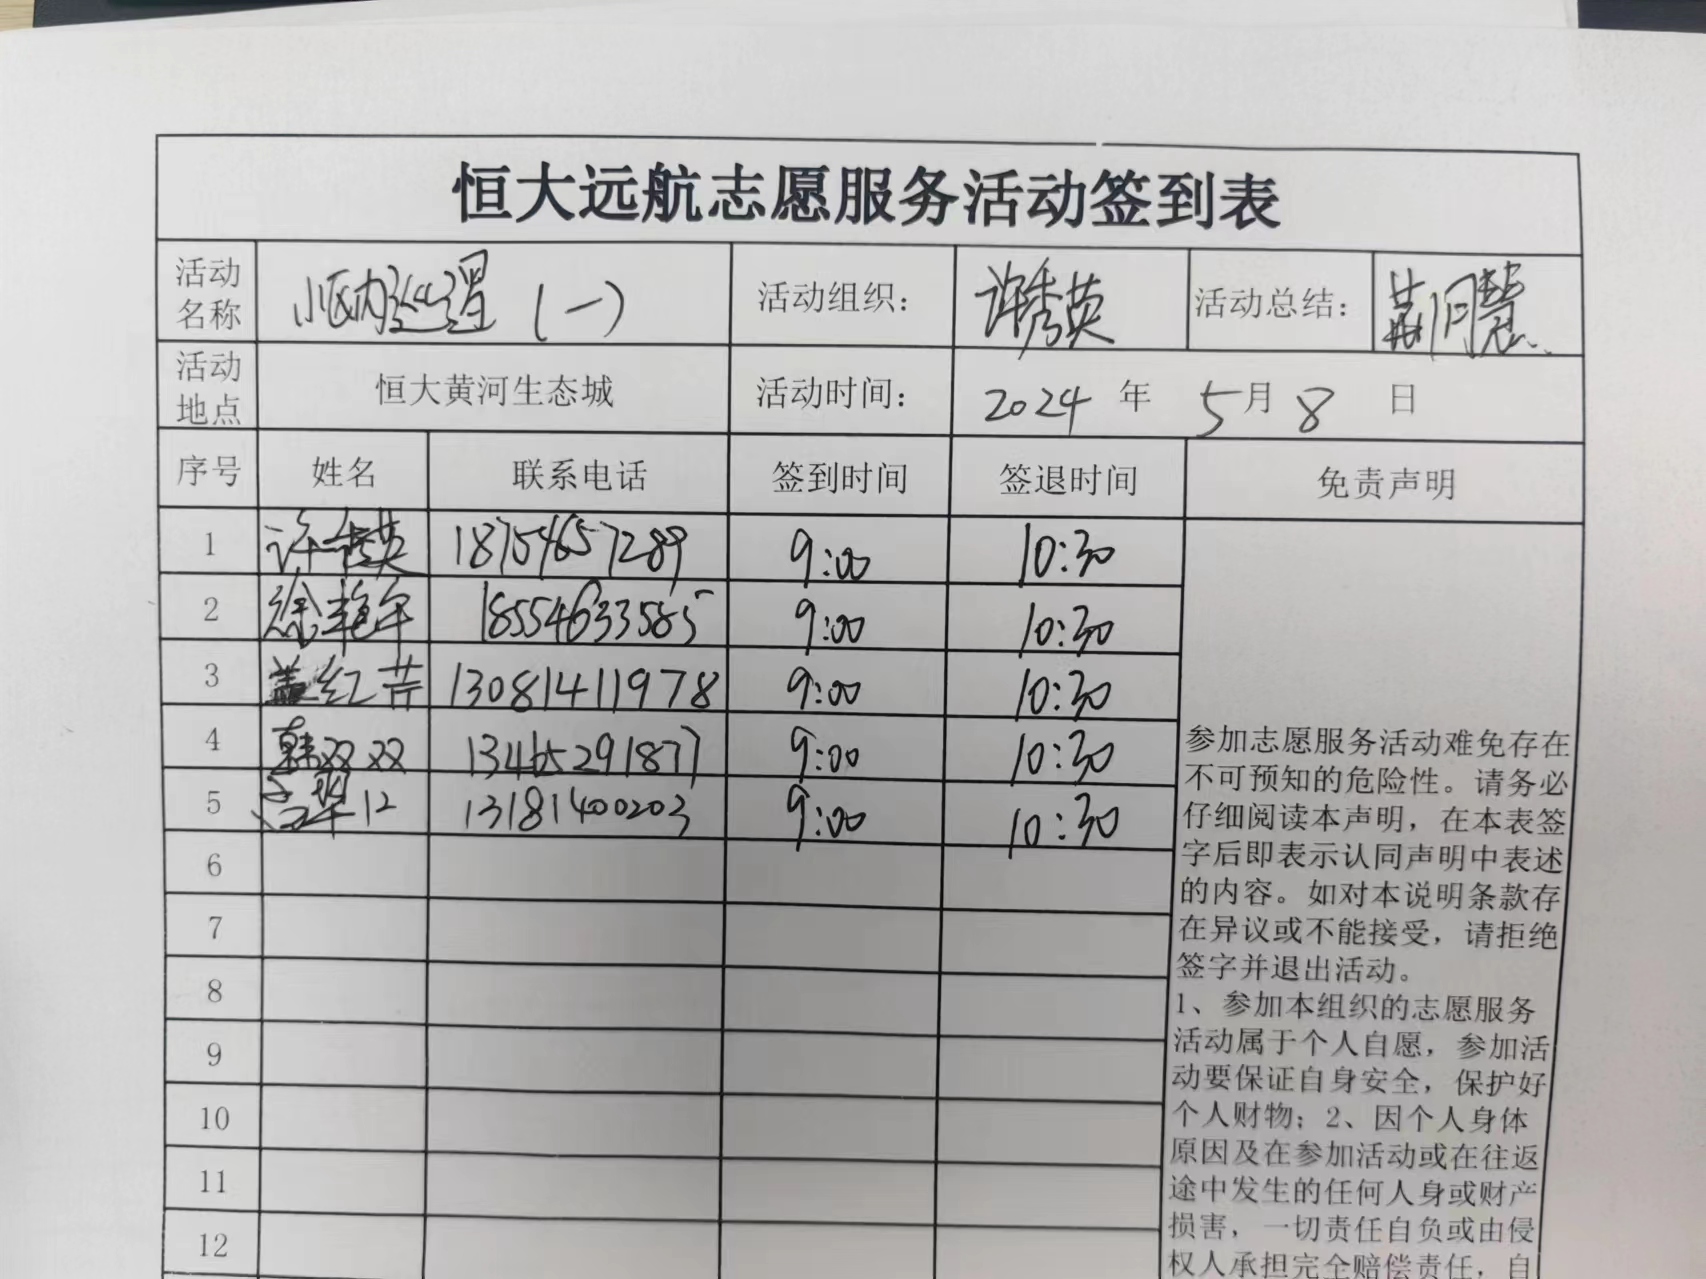 恒大远航志愿服务活动签到表
活动名称 小区内巡逻（一） 活动组织： 许秀英 活动总结：
活动地点 恒大黄河生态城 活动时间： 2024 年 5 月 8 日
序号 姓名 联系电话 签到时间 签退时间 免责声明
1 许秀英 18754657289 9:00 10:30
2 徐艳午 18554633585 9:00 10:30
3 盖红芹 13081411978 9:00 10:30
4 韩双双 13465291877 9:00 10:30
5 13181400203 9:00 10:30
6
7
8
9
10
11
12
参加志愿服务活动难免存在
不可预知的危险性。请务必
仔细阅读本声明，在本表签
字后即表示认同声明中表述
的内容。如对本说明条款存
在异议或不能接受，请拒绝
签字并退出活动。
1、参加本组织的志愿服务
活动属于个人自愿，参加活
动要保证自身安全，保护好
个人财物；2、因个人身体
原因及在参加活动或在往返
途中发生的任何人身或财产
损害，一切责任自负或由侵
权人承担完全赔偿责任，自